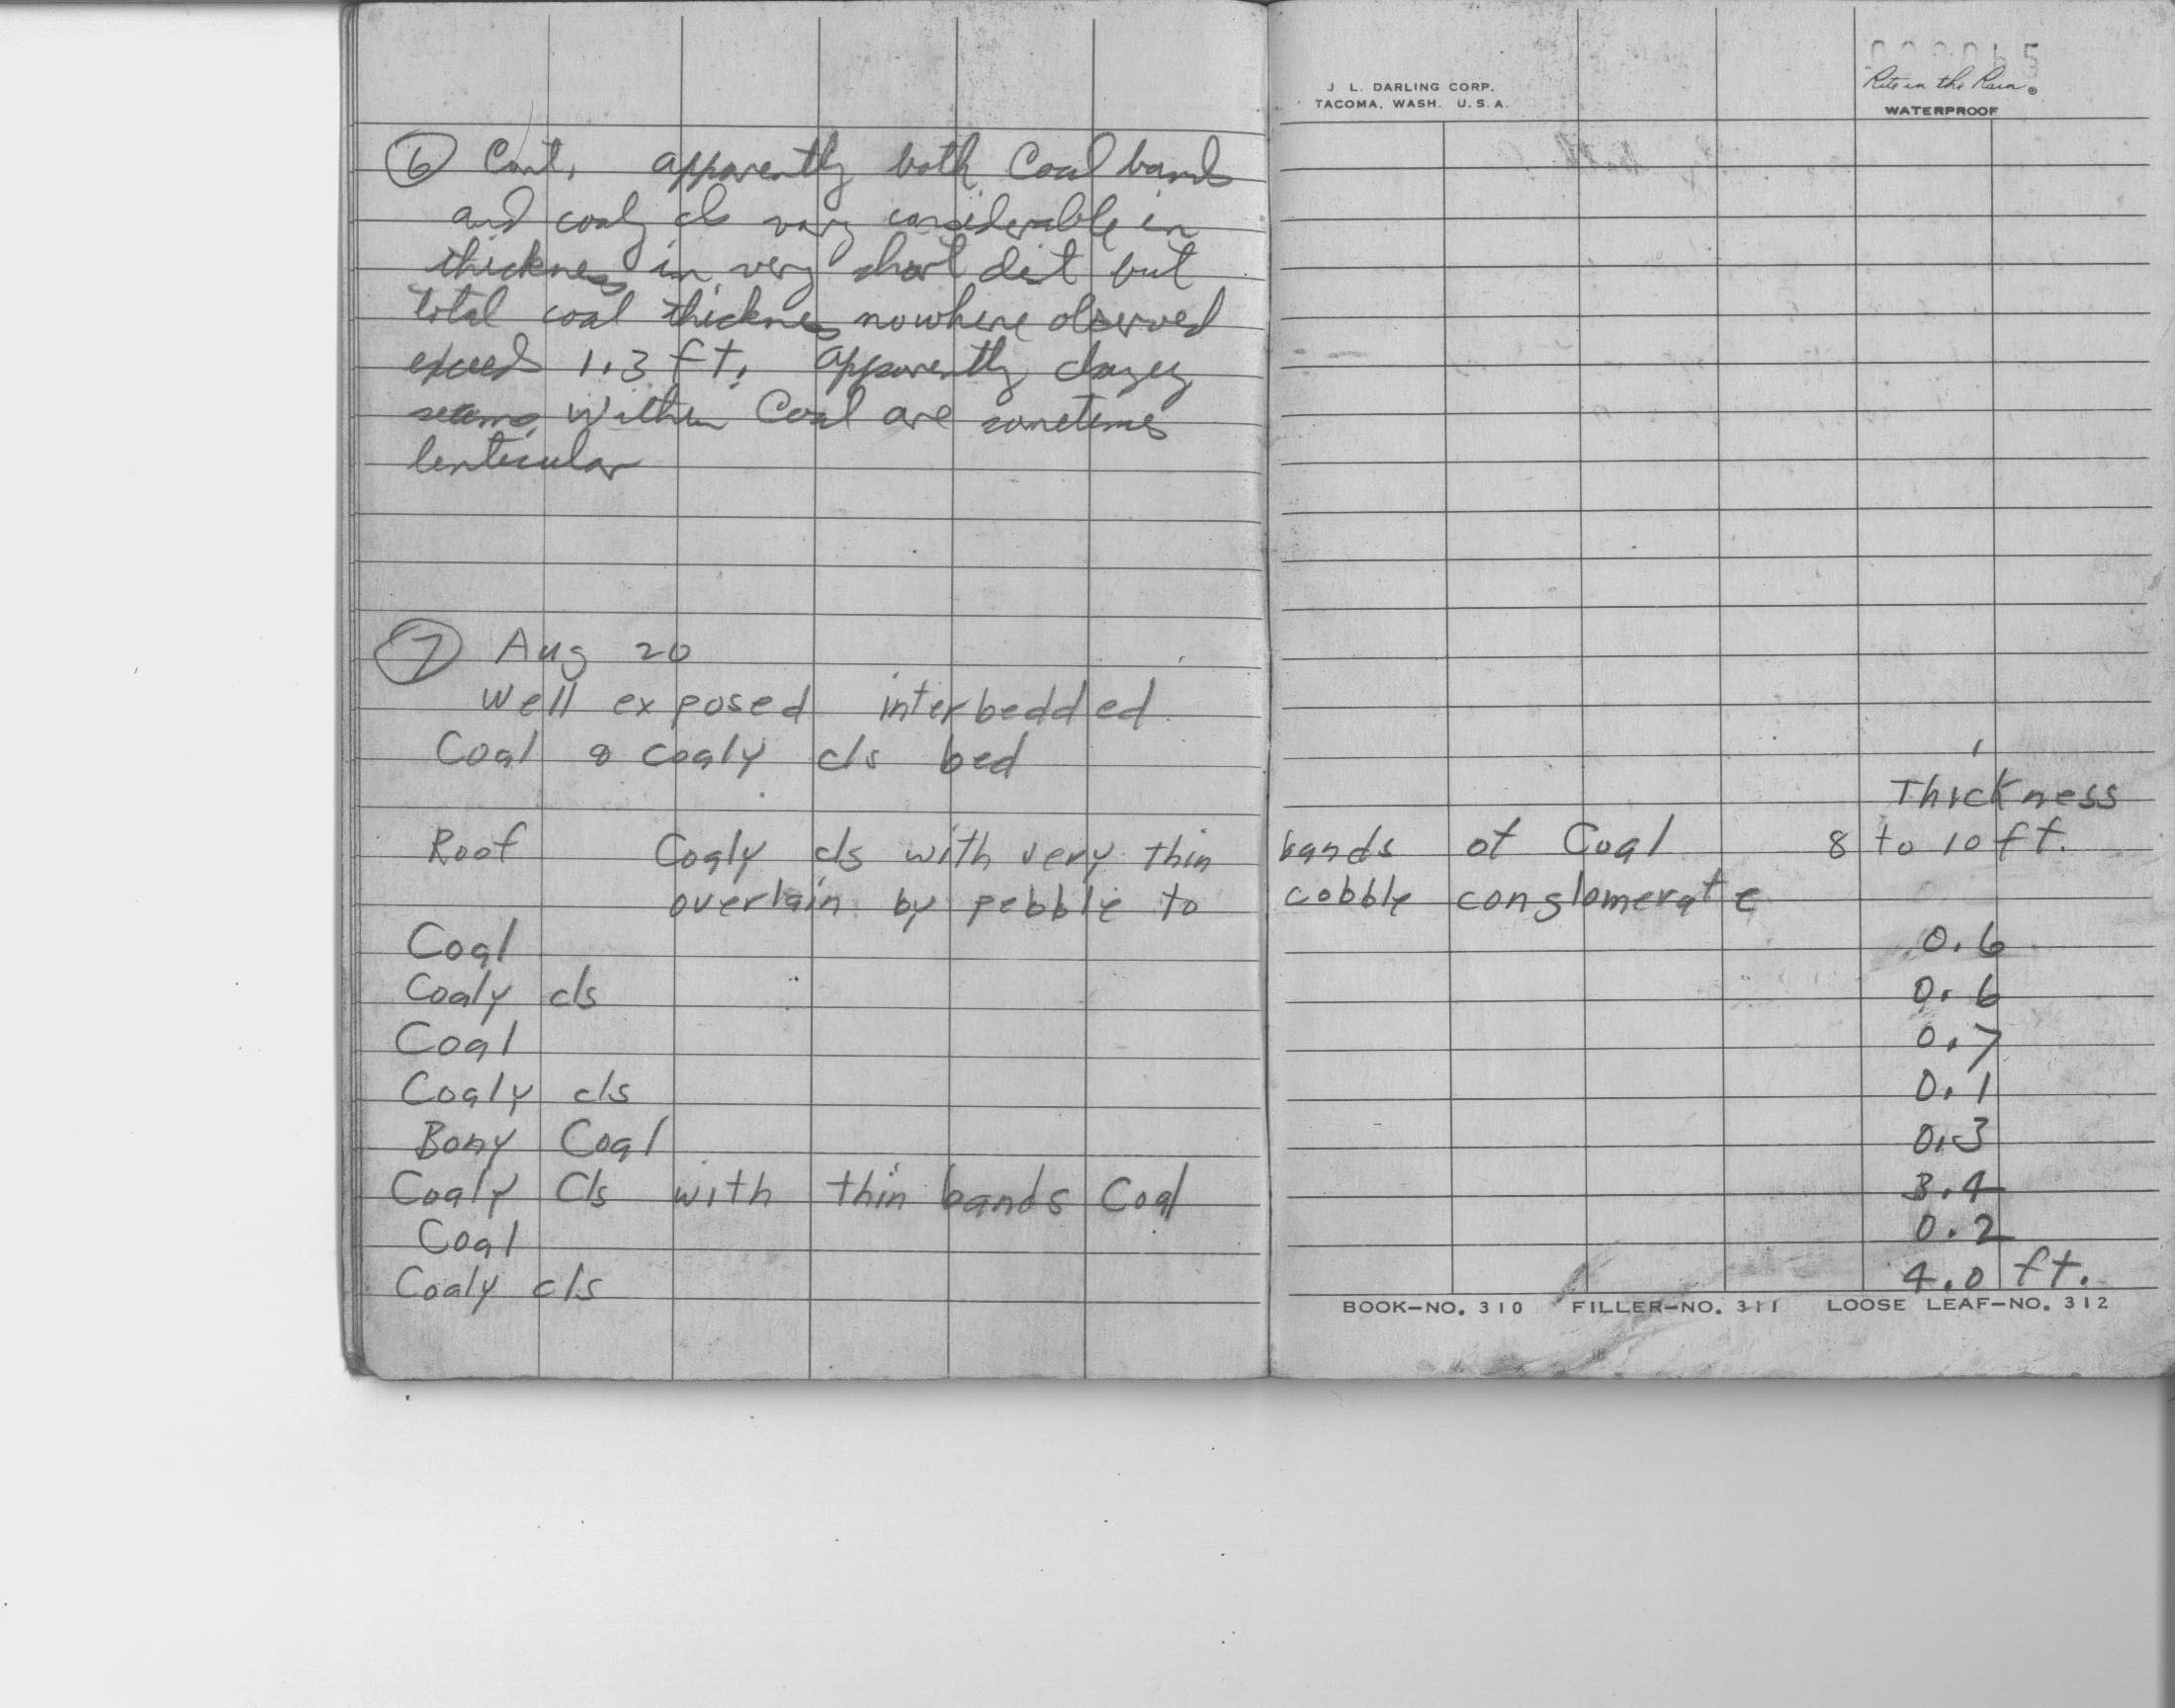 ⑥ Cont. apparently both Coal bands
and coaly cls vary considerable in
thickness in very short dist but
total coal thickness nowhere observed
exceeds 1.3 ft. apparently clayey
seams within Coal are sometimes
lenticular
⑦ Aug 20
Well exposed interbedded
Coal & coaly cls bed
J. L. DARLING CORP.
TACOMA, WASH. U.S.A.
Rite in the Rain®
WATERPROOF
Thickness
Roof Coaly cls with very thin bands of Coal 8 to 10 ft.
overlain by pebble to cobble conglomerate
Coal 0.6
Coaly cls 0.6
Coal 0.7
Coaly cls 0.1
Bony Coal 0.3
Coaly Cls with thin bands Coal 3.4
Coal 0.2
Coaly cls 4.0 ft.
BOOK-NO. 310 FILLER-NO. 311 LOOSE LEAF-NO. 312